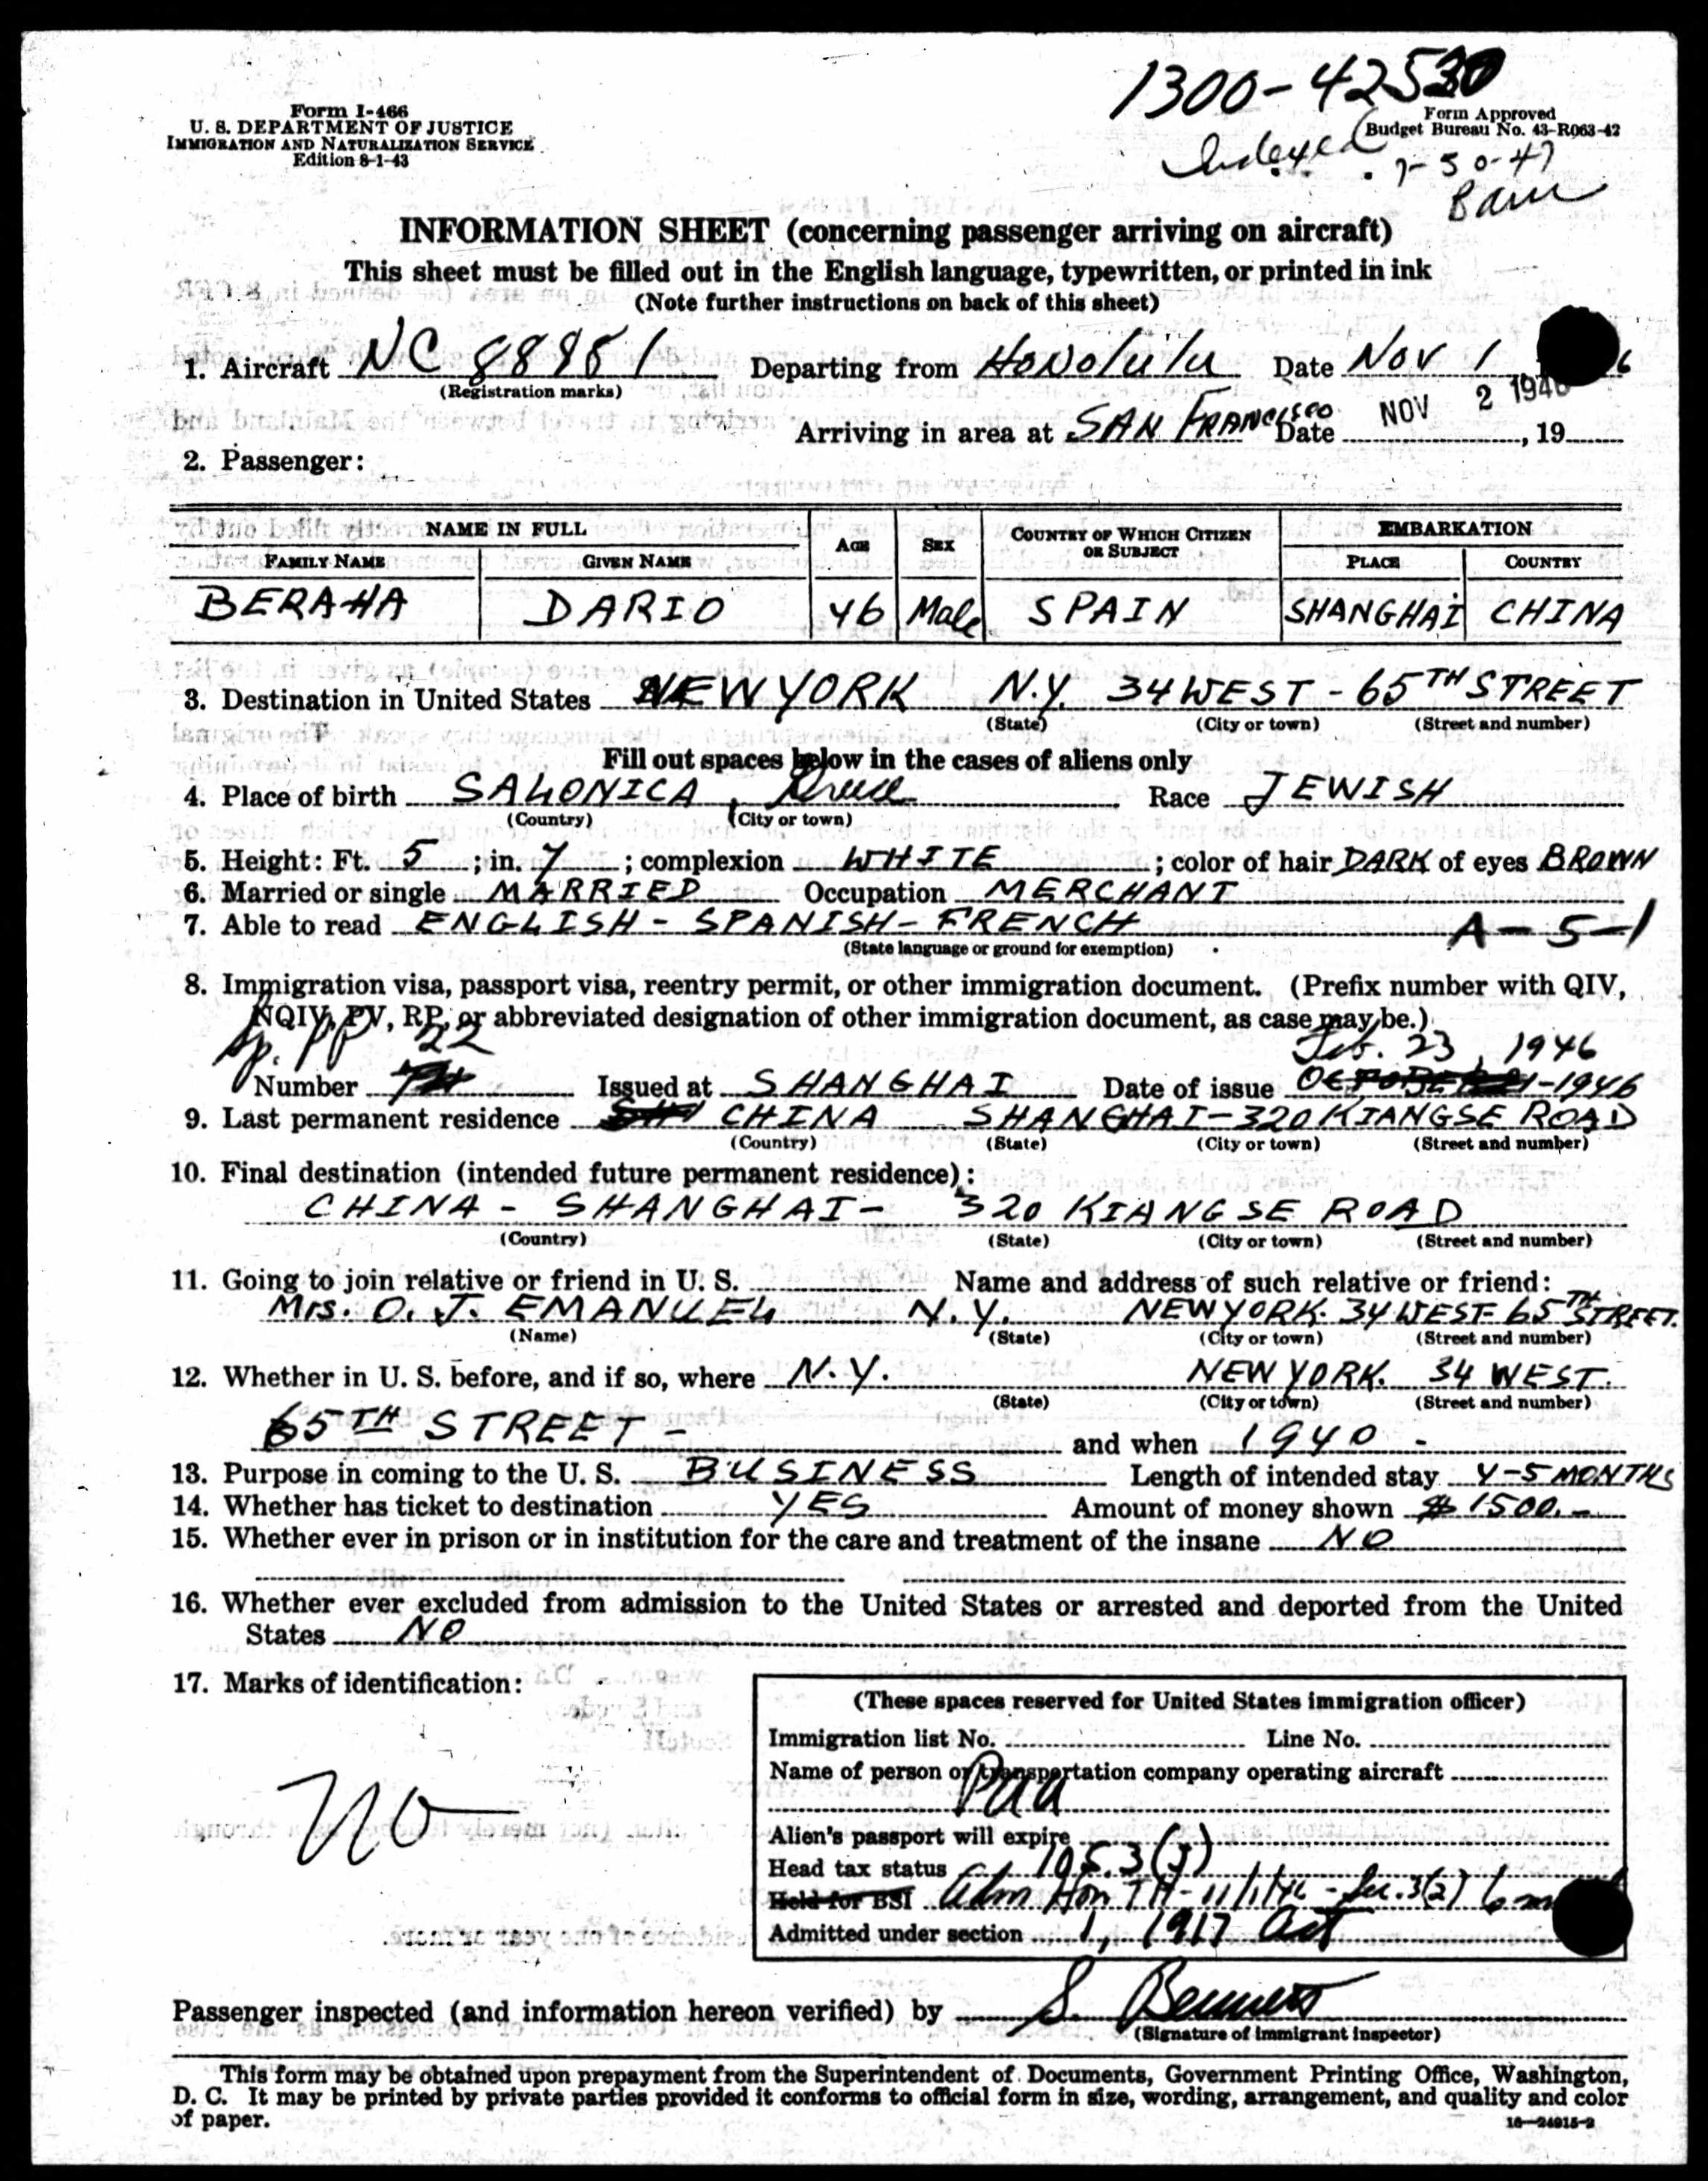 1300-42530
Form I-466
U. S. DEPARTMENT OF JUSTICE
IMMIGRATION AND NATURALIZATION SERVICE
Edition 8-1-43
Form Approved
Budget Bureau No. 43-R063-42
Indexed
7-30-47
INFORMATION SHEET (concerning passenger arriving on aircraft)
This sheet must be filled out in the English language, typewritten, or printed in ink
(Note further instructions on back of this sheet)
1. Aircraft NC 88951 Departing from HONOLULU Date NOV 1 6
(Registration marks)
NOV 2 1946
Arriving in area at SAN FRANCISCO Date , 19
2. Passenger:
NAME IN FULL AGE SEX COUNTRY OF WHICH CITIZEN OR SUBJECT EMBARKATION
FAMILY NAME GIVEN NAME PLACE COUNTRY
BERAHA DARIO 46 Male SPAIN SHANGHAI CHINA
3. Destination in United States NEW YORK N.Y. 34 WEST - 65TH STREET
(State) (City or town) (Street and number)
Fill out spaces below in the cases of aliens only
4. Place of birth SALONICA, Greece Race JEWISH
(Country) (City or town)
5. Height: Ft. 5 ; in. 7 ; complexion WHITE ; color of hair DARK of eyes BROWN
6. Married or single MARRIED Occupation MERCHANT
7. Able to read ENGLISH - SPANISH - FRENCH
(State language or ground for exemption)
A-5-1
8. Immigration visa, passport visa, reentry permit, or other immigration document. (Prefix number with QIV,
NQIV, PV, RP, or abbreviated designation of other immigration document, as case may be.)
Sp. PP 22 Feb. 23, 1946
Number Issued at SHANGHAI Date of issue OCTOBER 21-1946
9. Last permanent residence CHINA SHANGHAI-320 KIANGSE ROAD
(Country) (State) (City or town) (Street and number)
10. Final destination (intended future permanent residence):
CHINA - SHANGHAI - 320 KIANGSE ROAD
(Country) (State) (City or town) (Street and number)
11. Going to join relative or friend in U. S. Name and address of such relative or friend:
Mrs. O. J. EMANUEL N.Y. NEW YORK. 34 WEST- 65TH STREET.
(Name) (State) (City or town) (Street and number)
12. Whether in U. S. before, and if so, where N.Y. NEW YORK. 34 WEST.
(State) (City or town) (Street and number)
65TH STREET - and when 1940 -
13. Purpose in coming to the U. S. BUSINESS Length of intended stay 4-5 MONTHS
14. Whether has ticket to destination YES Amount of money shown $1500.-
15. Whether ever in prison or in institution for the care and treatment of the insane NO
16. Whether ever excluded from admission to the United States or arrested and deported from the United
States NO
17. Marks of identification:
no
(These spaces reserved for United States immigration officer)
Immigration list No. Line No.
Name of person or transportation company operating aircraft
Paa
Alien's passport will expire
Head tax status 105.3(j)
Held for BSI Adm Hon TH - 11/1/46 - Sec. 3(2) 6 m
Admitted under section 1, 1917 Act
Passenger inspected (and information hereon verified) by S. Bennett
(Signature of Immigrant Inspector)
This form may be obtained upon prepayment from the Superintendent of Documents, Government Printing Office, Washington,
D. C. It may be printed by private parties provided it conforms to official form in size, wording, arrangement, and quality and color
of paper.
16—24915-2